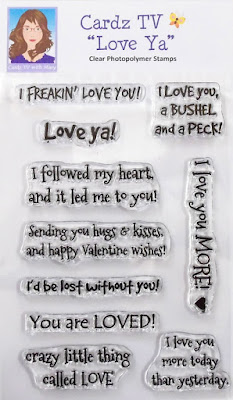 Cardz TV
"Love Ya"
Clear Photopolymer Stamps
I FREAKIN' LOVE YOU!
I LOVE YOU,
a BUSHEL
and a PECK!
Love ya!
I followed my heart,
and it led me to you!
I love you MORE!
Sending you hugs & kisses,
and happy Valentine wishes!
I'd be lost without you!
You are LOVED!
crazy little thing
called LOVE
I love you
more today
than yesterday.